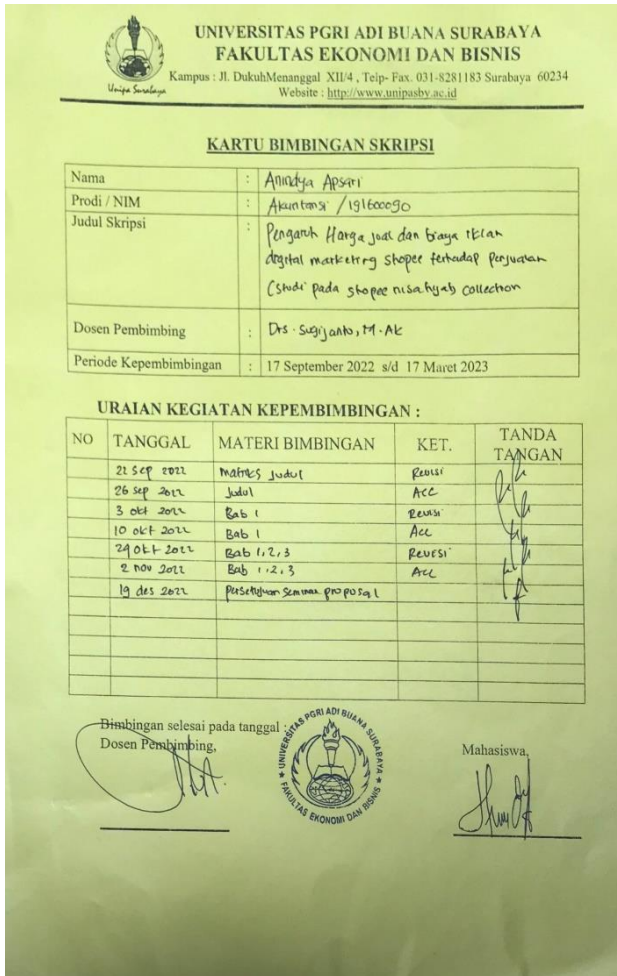 UNIVERSITAS PGRI ADI BUANA SURABAYA
FAKULTAS EKONOMI DAN BISNIS
Kampus : Jl. DukuhMenanggal XII/4 , Telp- Fax. 031-8281183 Surabaya 60234
Website : http://www.unipasby.ac.id
Unipa Surabaya
KARTU BIMBINGAN SKRIPSI
Nama : Anindya Apsari
Prodi / NIM : Akuntansi /191600090
Judul Skripsi : Pengaruh Harga jual dan biaya iklan
digital marketing shopee terhadap penjualan
(studi pada shopee nisa hijab collection
Dosen Pembimbing : Drs. Sugijanto, M.Ak
Periode Kepembimbingan : 17 September 2022 s/d 17 Maret 2023
URAIAN KEGIATAN KEPEMBIMBINGAN :
NO TANGGAL MATERI BIMBINGAN KET. TANDA TANGAN
22 Sep 2022 Matriks Judul Revisi
26 Sep 2022 Judul ACC
3 okt 2022 Bab 1 Revisi
10 okt 2022 Bab 1 Acc
24 okt 2022 Bab 1,2,3 Revisi
2 nov 2022 Bab 1,2,3 Acc
19 des 2022 persetujuan seminar proposal
Bimbingan selesai pada tanggal :
Dosen Pembimbing, Mahasiswa,
UNIVERSITAS PGRI ADI BUANA SURABAYA
FAKULTAS EKONOMI DAN BISNIS